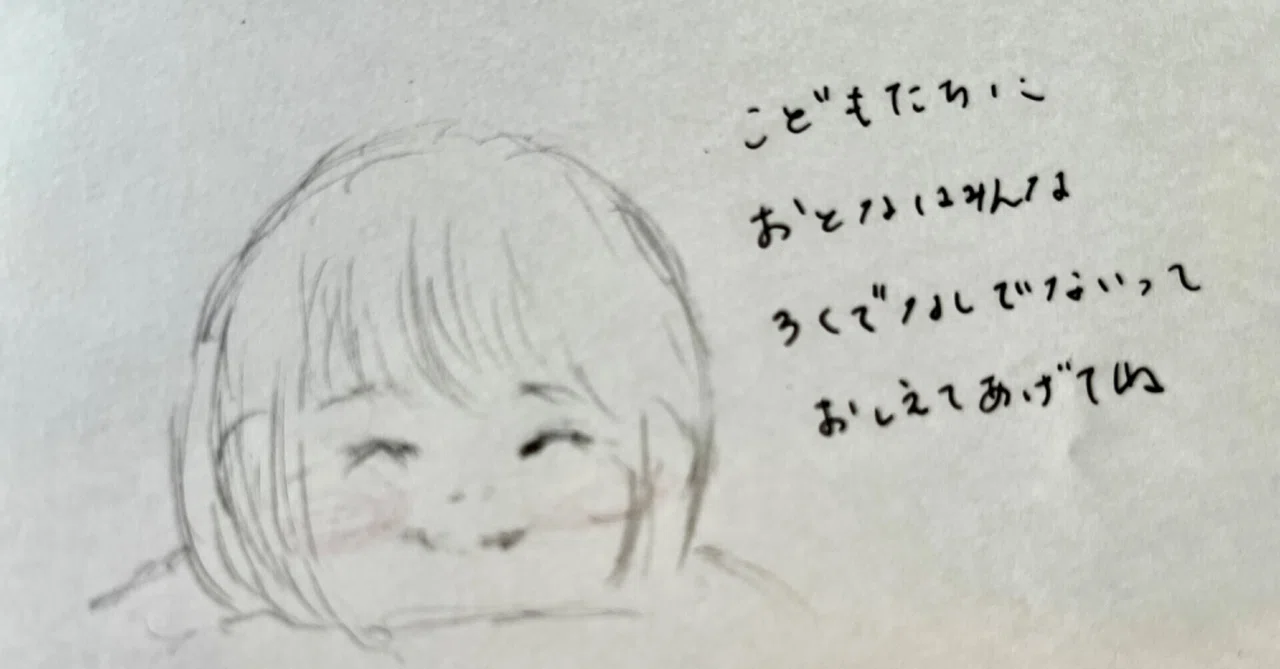 こどもたちに
おとなはみんな
ろくでなしでないって
おしえてあげてね